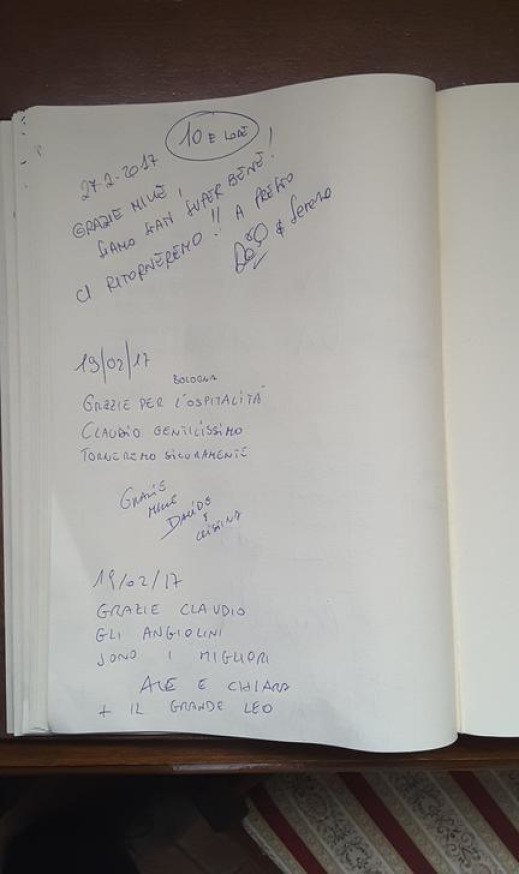 10 E LODE
27-2-2017
GRAZIE MILLE!
SIAMO STATI SUPER BENE!
CI RITORNEREMO!! A PRESTO
& Serena
19/02/17
BOLOGNA
GRAZIE PER L'OSPITALITÀ
CLAUDIO GENTILISSIMO
TORNEREMO SICURAMENTE
GRAZIE
MILLE
DAVIDE
19/02/17
GRAZIE CLAUDIO
GLI ANGIOLINI
SONO I MIGLIORI
ALE E CHIARA
+ IL GRANDE LEO